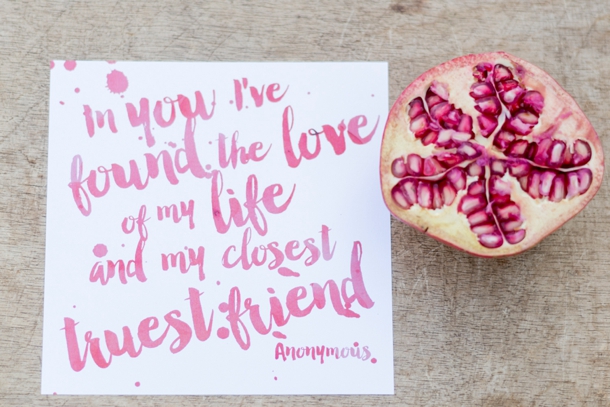 In you I've
found the love
of my life
and my closest
truest friend
Anonymous